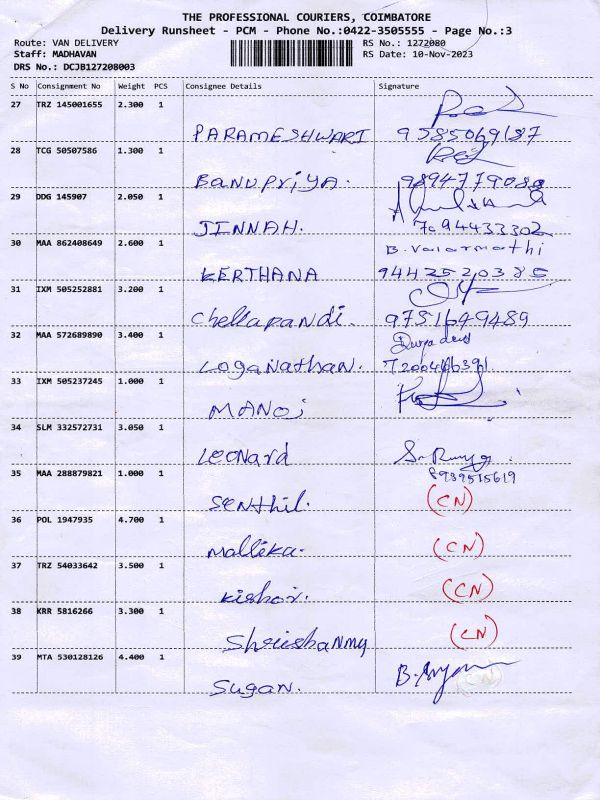 THE PROFESSIONAL COURIERS, COIMBATORE
Delivery Runsheet - PCM - Phone No.:0422-3505555 - Page No.:3
Route: VAN DELIVERY RS No.: 1272080
Staff: MADHAVAN RS Date: 10-Nov-2023
DRS No.: DCJB127208003
S No Consignment No Weight PCS Consignee Details Signature
27 TRZ 145001655 2.300 1
PARAMESHWARI 9585069187
28 TCG 50507586 1.300 1
Banupriya. 9894779088
29 DDG 145907 2.050 1
JINNAH. 7094433302
30 MAA 862408649 2.600 1 B. Valarmathi
KERTHANA 9442520385
31 IXM 505252881 3.200 1
Chellapandi. 9751649489
32 MAA 572689890 3.400 1
Loganathan. 7200466391
33 IXM 505237245 1.000 1
MANOj
34 SLM 332572731 3.050 1
Leonard
35 MAA 288879821 1.000 1 8939515619
Senthil. (CN)
36 POL 1947935 4.700 1
Mallika. (CN)
37 TRZ 54033642 3.500 1
Kishor. (CN)
38 KRR 5816266 3.300 1
(CN)
39 MTA 530128126 4.400 1
Sugan.